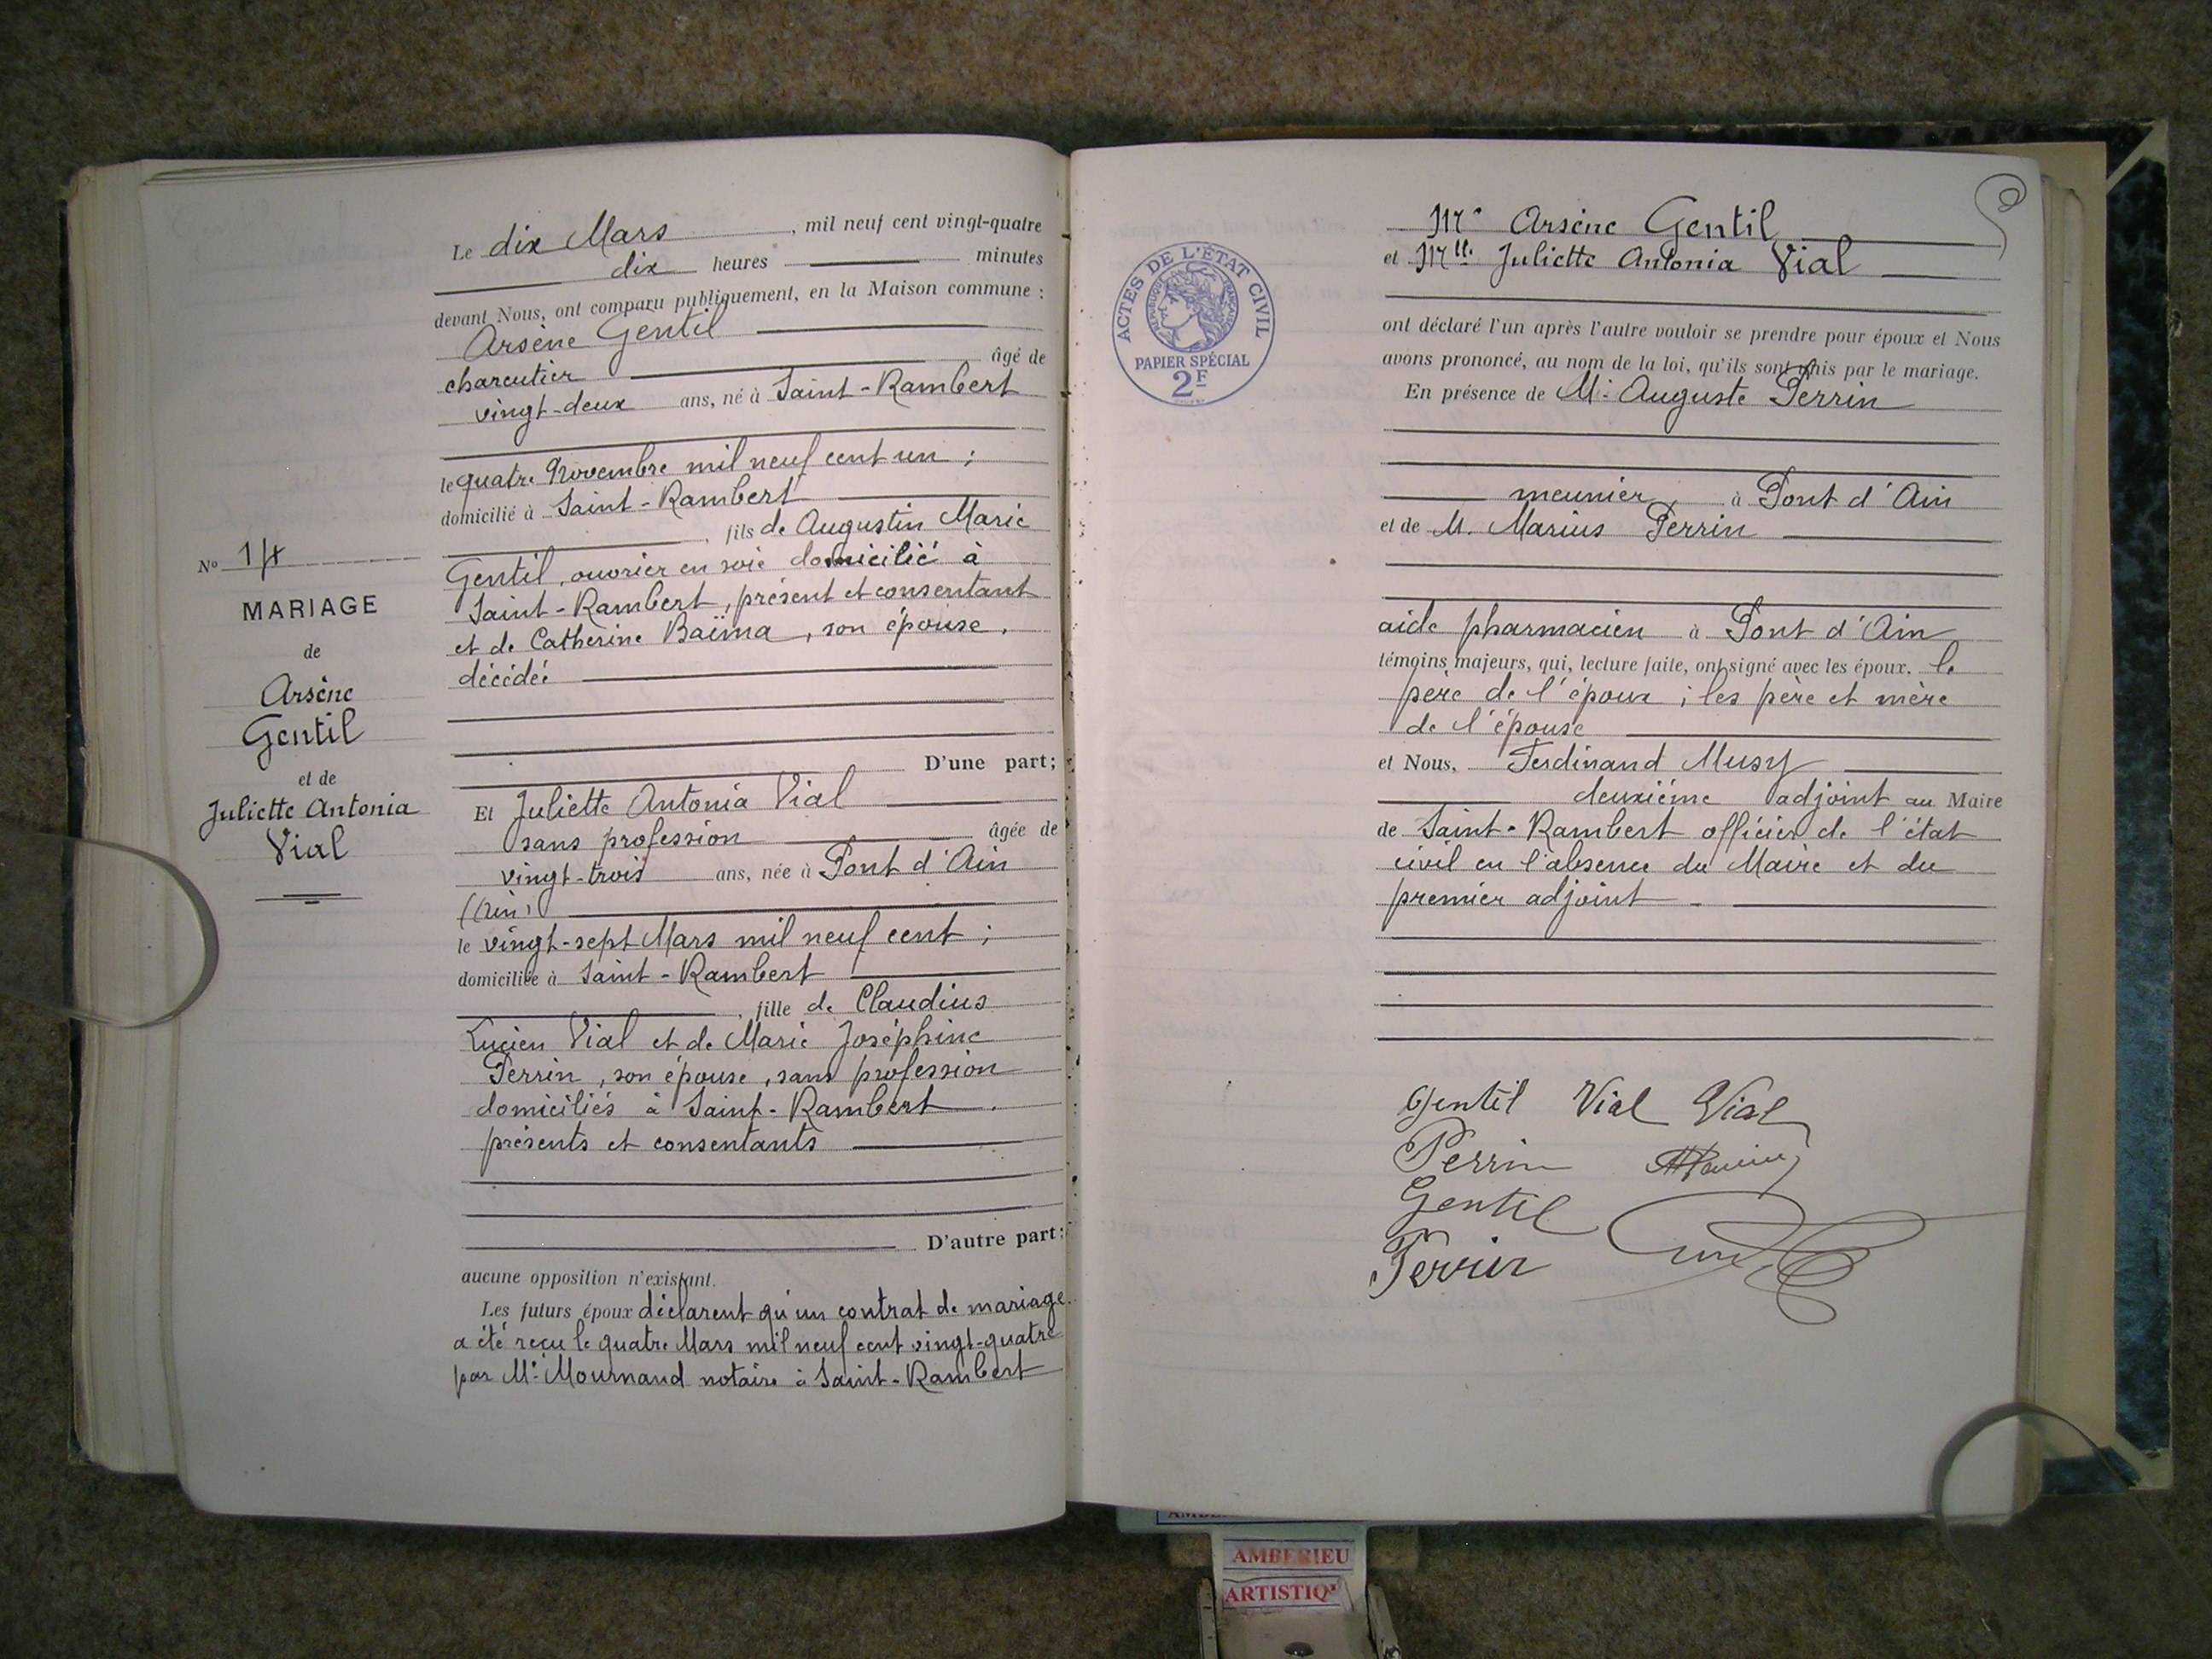 Le dix Mars, mil neuf cent vingt-quatre
dix heures minutes
devant Nous, ont comparu publiquement, en la Maison commune :
Arsène Gentil
charcutier âgé de
vingt-deux ans, né à Saint-Rambert
le quatre Novembre mil neuf cent un ;
domicilié à Saint-Rambert
, fils de Augustin Marie
Gentil, ouvrier en soie domicilié à
Saint-Rambert, présent et consentant
et de Catherine Baïma, son épouse,
décédée
D'une part;
Et Juliette Antonia Vial
sans profession âgée de
vingt-trois ans, née à Pont d'Ain
(Ain)
le vingt-sept Mars mil neuf cent ;
domiciliée à Saint-Rambert
, fille de Claudius
Lucien Vial et de Marie Joséphine
Perrin, son épouse, sans profession
domiciliés à Saint-Rambert.
présents et consentants
D'autre part;
aucune opposition n'existant.
Les futurs époux déclarent qu'un contrat de mariage
a été reçu le quatre Mars mil neuf cent vingt-quatre
par Me Mournand notaire à Saint-Rambert
No 14
MARIAGE
de
Arsène
Gentil
et de
Juliette Antonia
Vial
ACTES DE L'ÉTAT CIVIL
RÉPUBLIQUE FRANÇAISE
PAPIER SPÉCIAL
2F
Mr Arsène Gentil
et Mlle Juliette Antonia Vial
ont déclaré l'un après l'autre vouloir se prendre pour époux et Nous
avons prononcé, au nom de la loi, qu'ils sont unis par le mariage.
En présence de M. Auguste Perrin
meunier, à Pont d'Ain
et de M. Marius Perrin
aide pharmacien à Pont d'Ain
témoins majeurs, qui, lecture faite, ont signé avec les époux. le
père de l'époux ; les père et mère
de l'épouse
et Nous, Ferdinand Musy
deuxième adjoint au Maire
de Saint-Rambert officier de l'état
civil en l'absence du Maire et du
premier adjoint.
Gentil Vial Vial
Perrin
Gentil
Perrin
AMBERIEU
ARTISTIQ